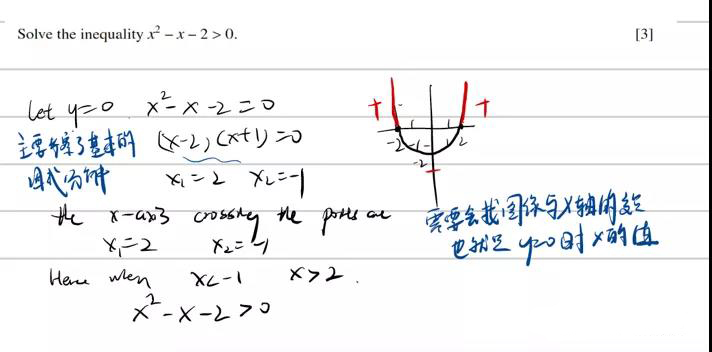 Solve the inequality x² − x − 2 > 0. [3]
let y=0 x²-x-2=0
主要考察了基本的 (x-2)(x+1)=0
因式分解 x₁=2 x₂=-1
the x-axis crossing the points are
x₁=2 x₂=-1
Hence when x<-1 x>2.
x²-x-2>0
+ +
-2 -1 1 2
-2
需要会找图像与x轴的交点
也就是 y=0时x的值